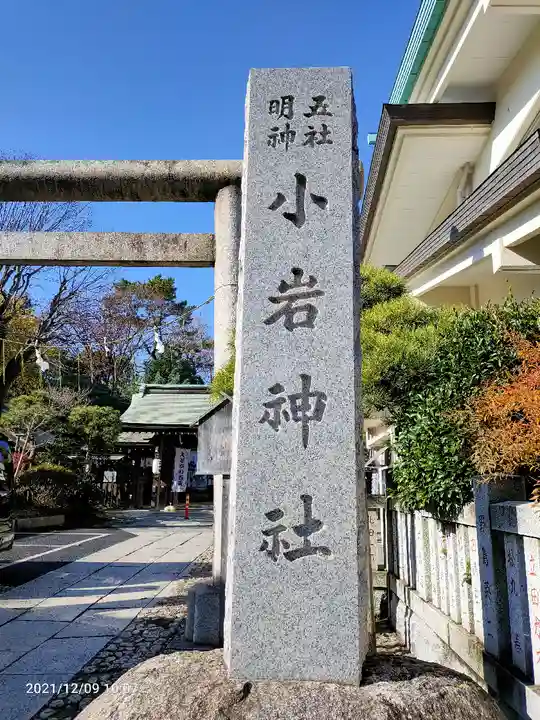 五社
明神
小岩神社
2021/12/09 10:07